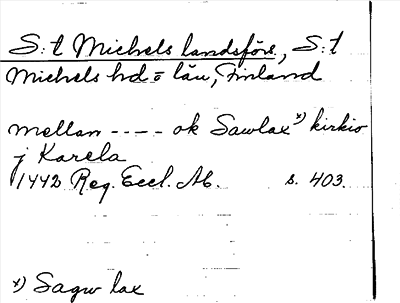 S:t Michels landsförs., S:t
Michels hd o län, Finland
mellan ---- ok Sawlax x) kirkio
j Karela
1442 Reg. Eccl. Ab. s. 403.
x) Sagw lax